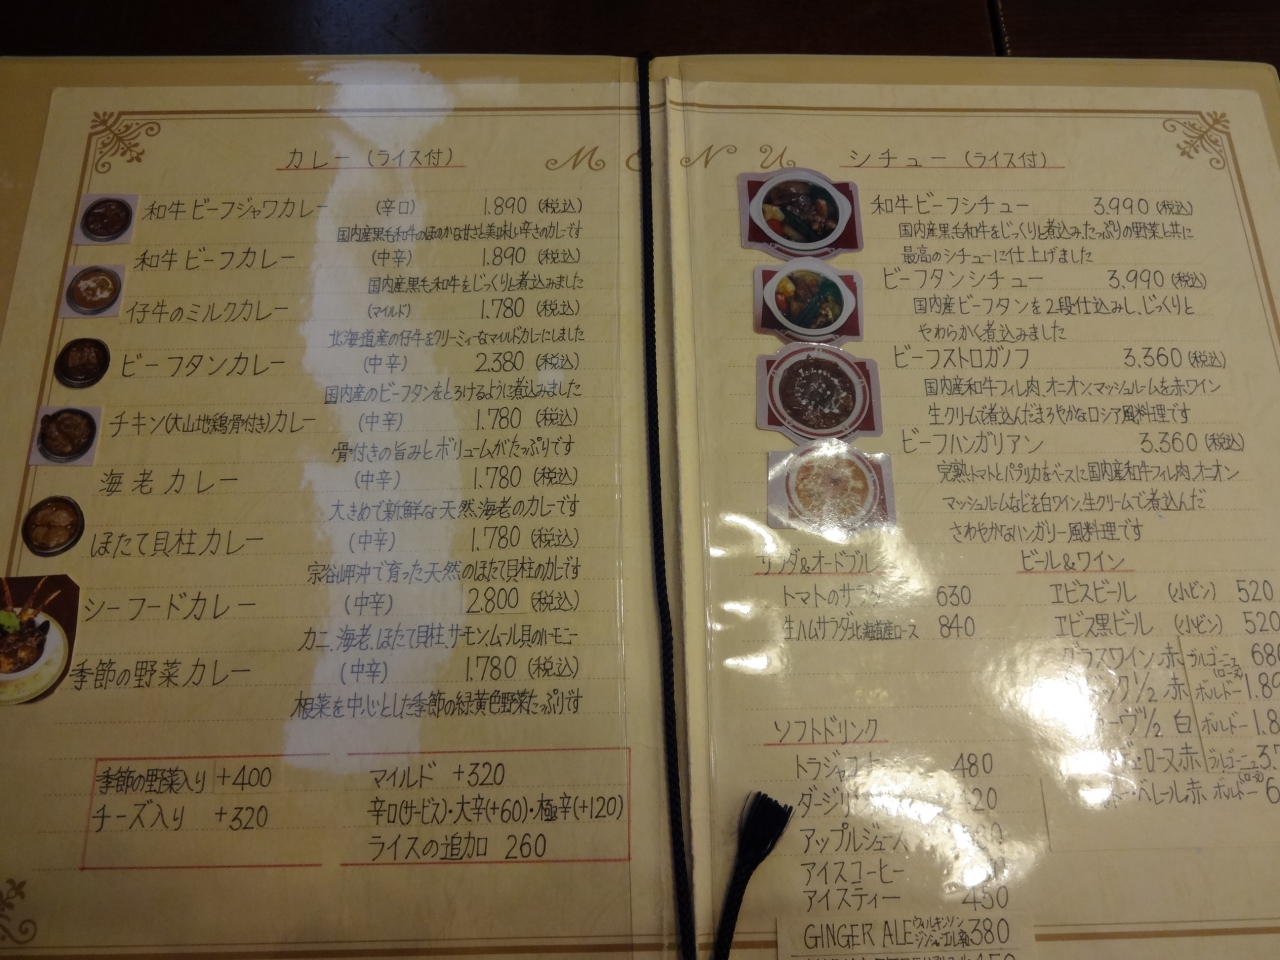 MENU
カレー (ライス付)
和牛ビーフジャワカレー (辛口) 1.890 (税込)
国内産黒毛和牛のほのかな甘さと美味しい辛さのカレーです
和牛ビーフカレー (中辛) 1.890 (税込)
国内産黒毛和牛をじっくりと煮込みました
仔牛のミルクカレー (マイルド) 1.780 (税込)
北海道産の仔牛をクリーミィーなマイルドカレーにしました
ビーフタンカレー (中辛) 2.380 (税込)
国内産のビーフタンをとろけるように煮込みました
チキン(大山地鶏骨付き)カレー (中辛) 1.780 (税込)
骨付きの旨みとボリュームがたっぷりです
海老カレー (中辛) 1.780 (税込)
大きめで新鮮な天然海老のカレーです
ほたて貝柱カレー (中辛) 1.780 (税込)
宗谷岬沖で育った天然のほたて貝柱のカレーです
シーフードカレー (中辛) 2.800 (税込)
カニ、海老、ほたて貝柱、サーモン、ムール貝のハーモニー
季節の野菜カレー (中辛) 1.780 (税込)
根菜を中心とした季節の緑黄色野菜たっぷりです
季節の野菜入り +400
チーズ入り +320
マイルド +320
辛口(サービス)・大辛(+60)・極辛(+120)
ライスの追加 260
シチュー (ライス付)
和牛ビーフシチュー 3.990 (税込)
国内産黒毛和牛をじっくりと煮込み、たっぷりの野菜と共に
最高のシチューに仕上げました
ビーフタンシチュー 3.990 (税込)
国内産ビーフタンを2段仕込みし、じっくりと
やわらかく煮込みました
ビーフストロガノフ 3.360 (税込)
国内産和牛フィレ肉、オニオン、マッシュルームを赤ワイン
生クリームで煮込んだまろやかなロシア風料理です
ビーフハンガリアン 3.360 (税込)
完熟トマト、パプリカをベースに国内産和牛フィレ肉、オニオン
マッシュルームなどを白ワイン、生クリームで煮込んだ
さわやかなハンガリー風料理です
サラダ&オードブル
トマトのサラダ 630
生ハムサラダ北海道産ロース 840
ビール&ワイン
ヱビスビール (小ビン) 520
ヱビス黒ビール (小ビン) 520
グラスワイン 赤 ブルゴーニュ(ローヌ) 680
1/2 赤 ボルドー 1.89
1/2 白 ボルドー 1.8
赤 ブルゴーニュ(ローヌ) 3.7
赤 ボルドー 6
ソフトドリンク
480
アップルジュース
アイスコーヒー
アイスティー 450
GINGER ALE ウィルキンソン ジンジャーエール 380